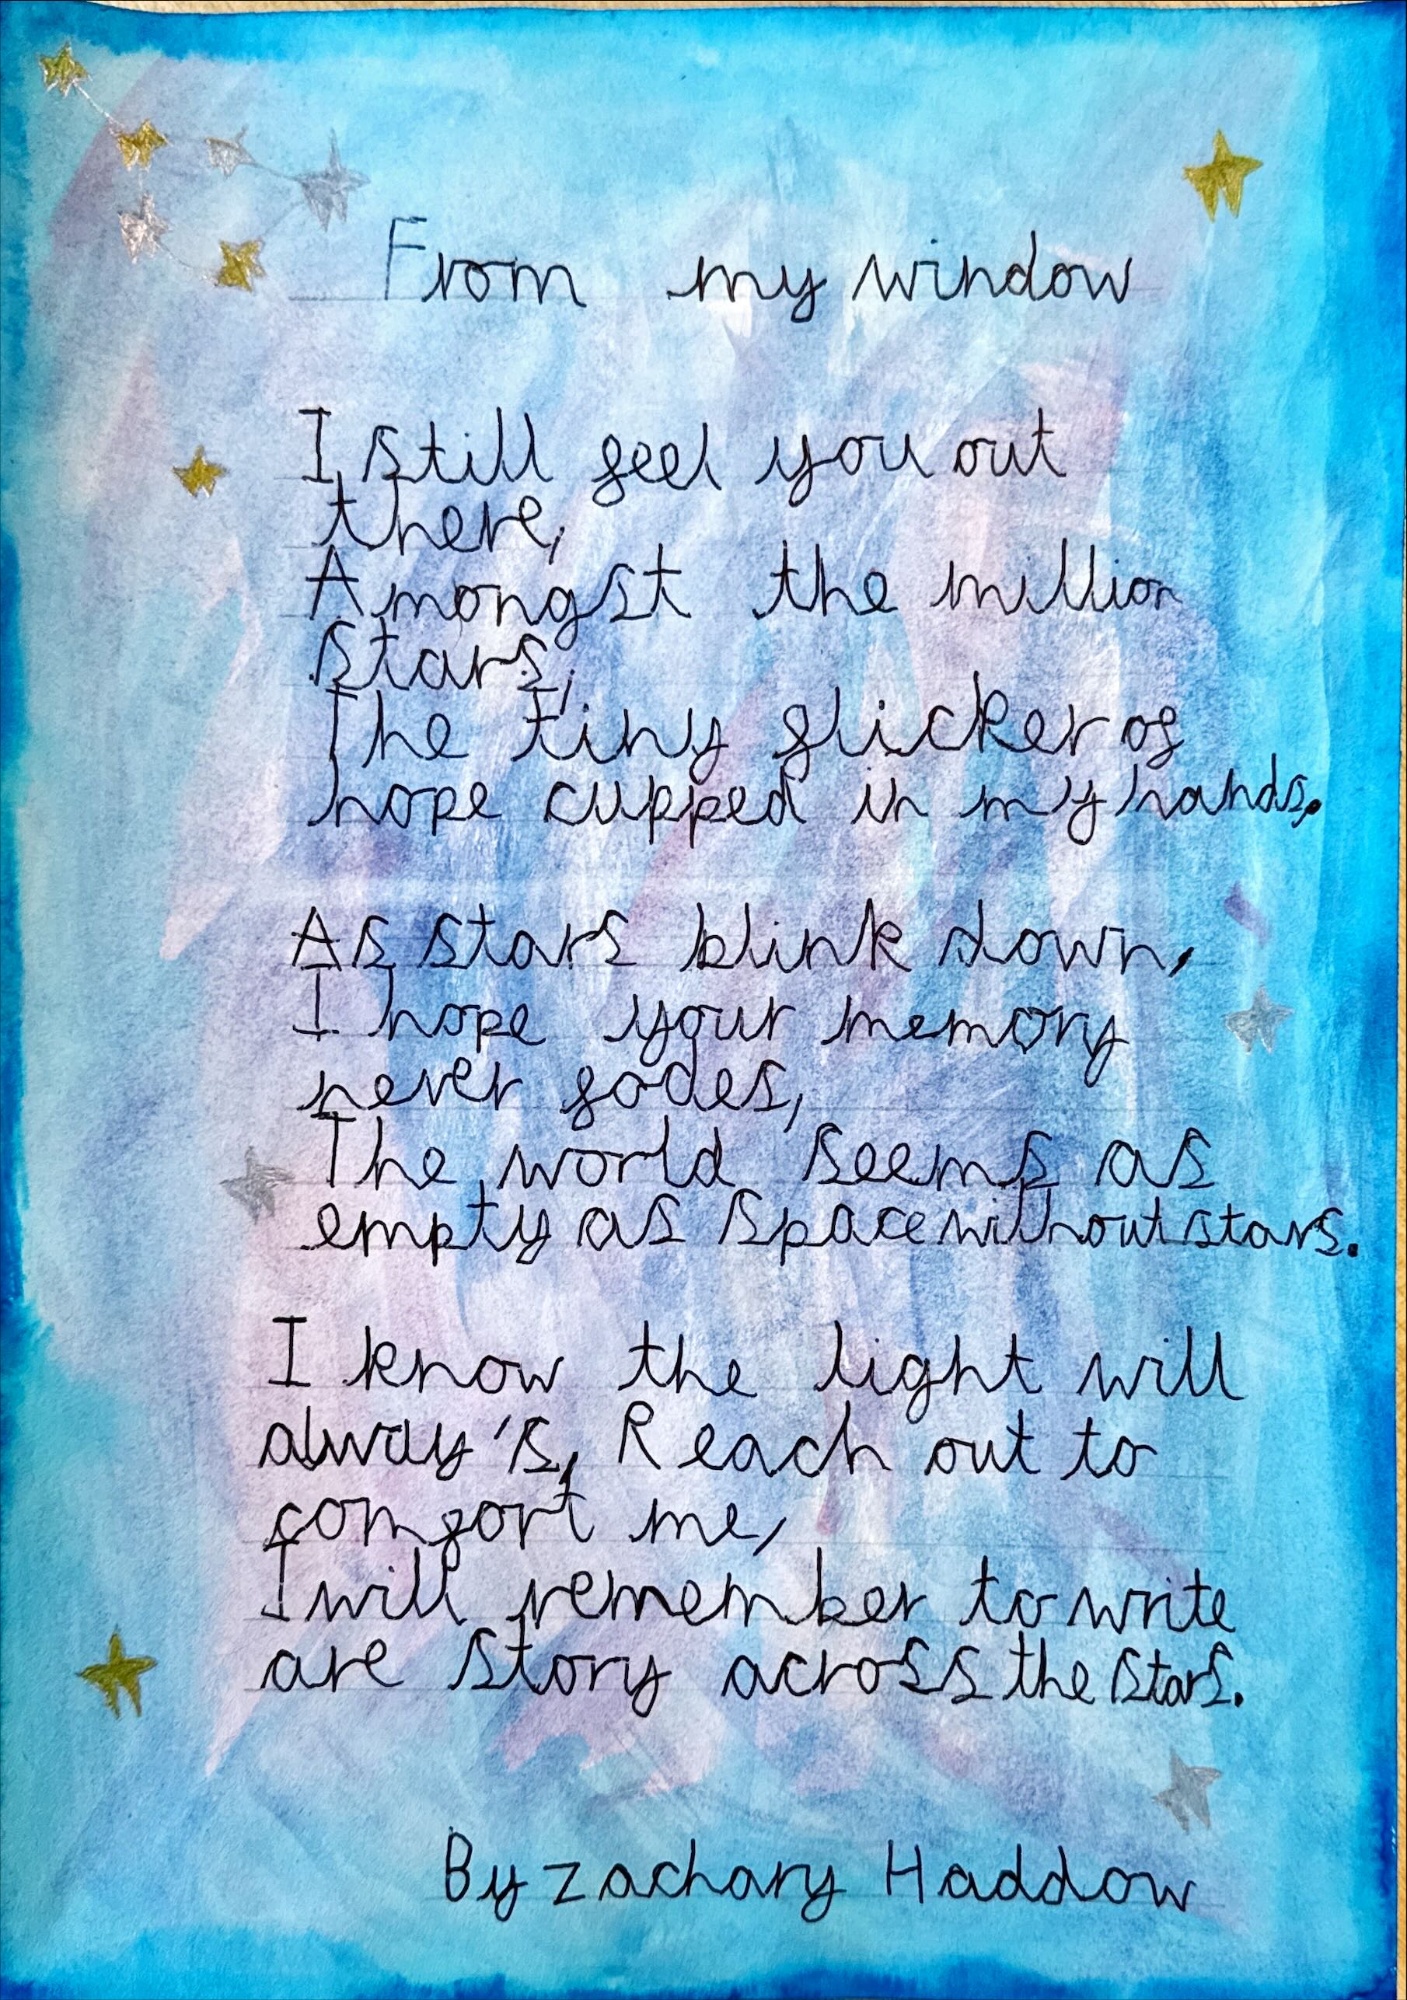 From my window
I still feel you out
there,
Amongst the million
stars,
The tiny flicker of
hope cupped in my hands.
As stars blink down,
I hope your memory
never fades,
The world seems as
empty as space without stars.
I know the light will
alway's, Reach out to
comfort me,
I will remember to write
are story across the stars.
By zachary Haddow